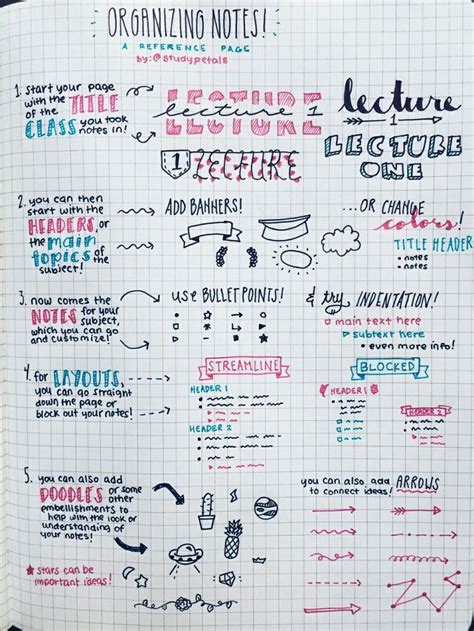 ORGANIZING NOTES!
A REFERENCE PAGE
by: @studypetals
1. start your page
with the TITLE
of the
CLASS you took
notes in!
LECTURE
lecture 1
LECTURE
1 LECTURE
lecture
1
LECTURE
ONE
2. you can then
start with the
HEADERS, or
the main
topics of the
subject!
ADD BANNERS!
...OR CHANGE
colors!
TITLE HEADER
• notes
• notes
3. now comes the
NOTES for your
subject,
which you can go
and customize!
USE BULLET POINTS!
& try INDENTATION!
main text here
subtext here
• even more info!
4. for LAYOUTS,
you can go straight
down the page or
block out your notes!
STREAMLINE
HEADER 1
HEADER 2
BLOCKED
HEADER 1
HEADER 2
5. you can also add
DOODLES or some
other
embellishments to
help with the look or
understanding of
your notes!
stars can be
important ideas!
you can also add ARROWS
to connect ideas!